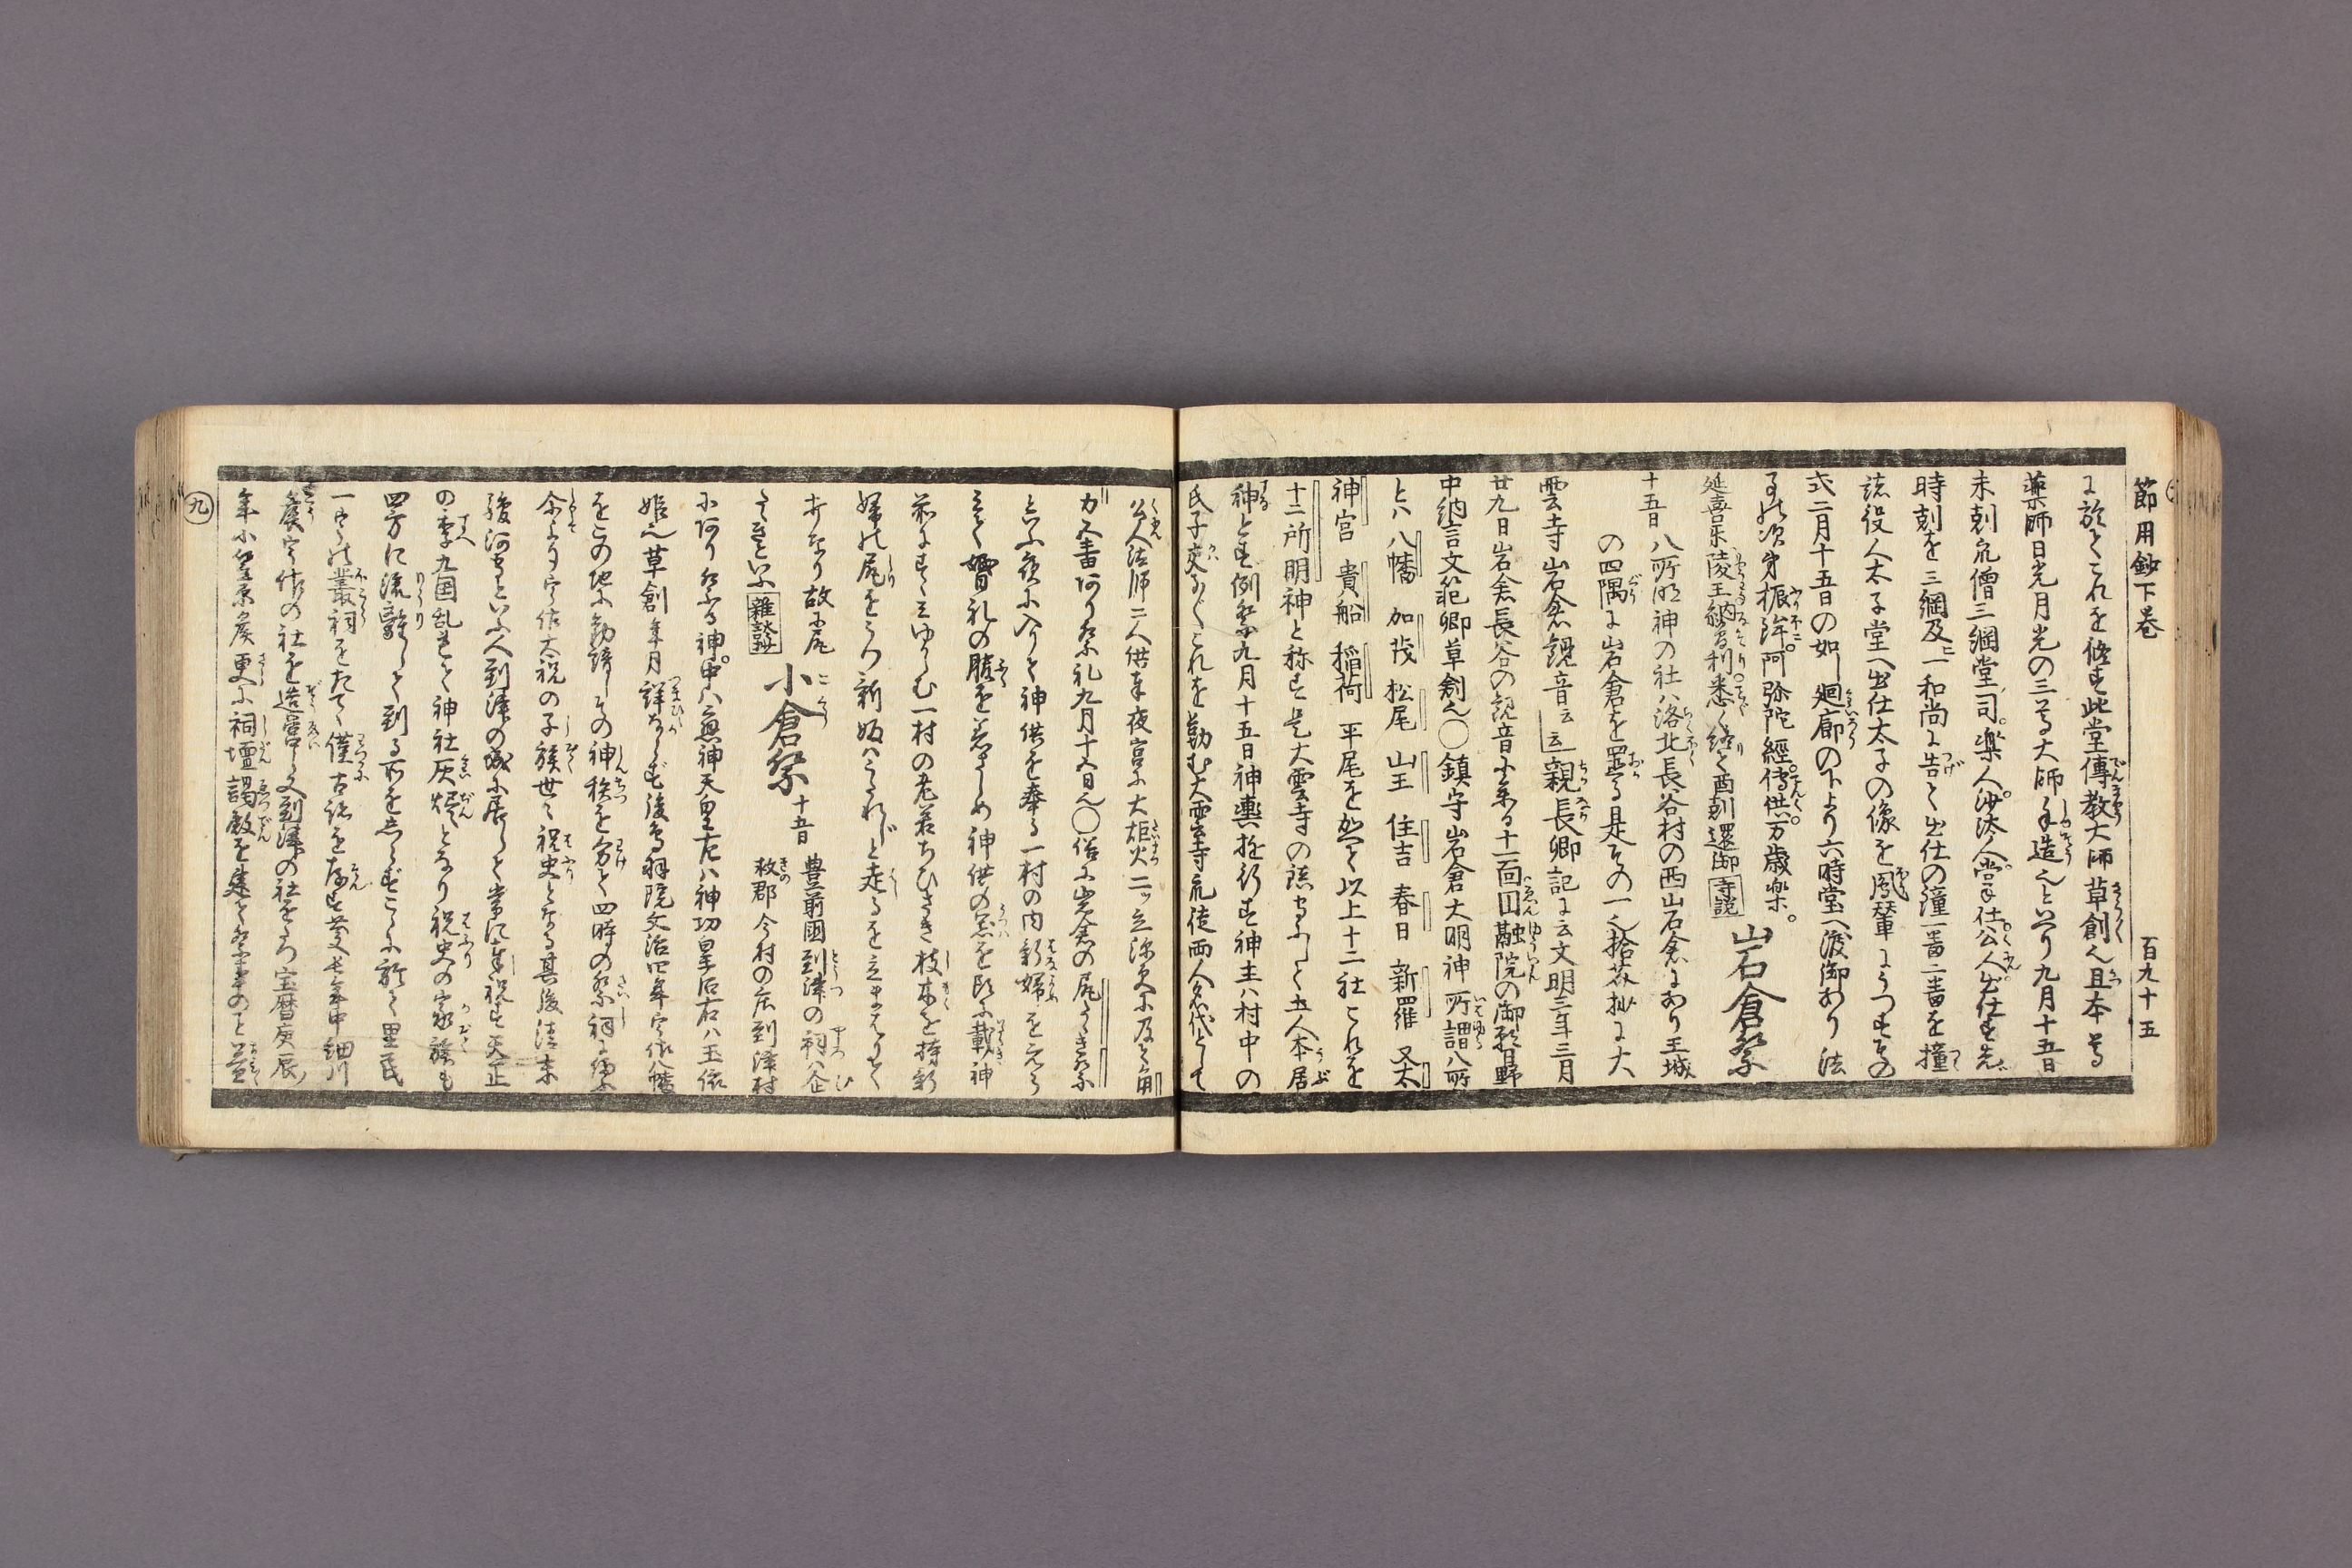 節用鈔下巻 百九十五
に於てこれを修す此堂傳教大師草創也且本尊
薬師日光月光の三尊大師手造也といへり九月十五日
未剋衆僧三綱堂司楽人沙汰人堂子仕公人出仕す先
時剋を三綱及ニ一和尚に告て出仕の鐘一番二番を撞
諸役人太子堂へ出仕太子の像を鳳輦にうつすその
式二月十五日の如し廻廊の下より六時堂へ渡御あり法
事次第振鉾阿弥陀經傳供万歳楽
延喜楽陵王納曽利悉く終て酉剋還御 寺説
岩倉祭
十五日 八所明神の社ハ洛北長谷村の西山岩倉にあり王城
の四隅に岩倉を置る是その一也拾芥抄に大
雲寺岩倉観音云云親長卿記に云文明三年三月
廿九日岩倉長谷の観音に参る十一面円融院の御願日野
中納言文範卿草創也〇鎮守岩倉大明神所謂八所
とハ八幡 加茂 松尾 山王 住吉 春日 新羅 又太
神宮 貴船 稲荷 平尾を加へて以上十二社これを
十二所明神と称す是大雲寺の鎮守にして五人本居
神とす例祭九月十五日神輿遊行す神主ハ村中の
氏子交あがてこれを勤む大雲寺衆徒両人名代として
公人法師二人供奉夜宮に大炬火二ッ立深更に及て角
力又書あり祭礼九月十五日也〇俗に岩倉の尻たゝき祭
といふ夜に入りて神供を奉る一村の内新婦をえら
みて婚礼の服を着しめ神供の器を頭に載神
前にすゝみゆかしむ一村の老若ちひさき枝木を持新
婦の尻をうつ新婦ハうたれじと走るを
故に尻
たゝきといふ 雑談抄
小倉祭
十五日 豊前國到津の祠ハ企
救郡今村の庄到津村
にあり祭る神中ハ應神天皇左ハ神功皇后右ハ玉依
姫也草創年月詳ならず後鳥羽院文治四年宇佐八幡
をこの地に勧請しその神秩を分て四時の祭祠を
令より宇佐大祝の子族世々祝史となる其後法末
駿河守といふ人到津の城に居して常に奉祝す天正
の季九国乱れて神社灰燼となり祝史の家族も
四方に流離して到る所をしらずこゝに於て里民
一宇の叢祠をたてゝ僅古誌を存す慶長年中細川
侯宇佐の社を造営し又到津の社を 宝暦庚辰ノ
年小笠原侯更に祠壇謁殿を建て祭事のと並
九